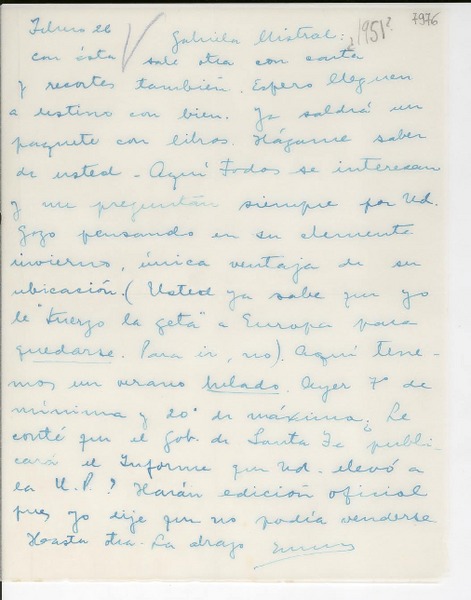 7976
¿1951?
Febrero 26
Gabriela Mistral:
con ésta sale otra con carta
y recortes también. Espero lleguen
a destino con bien. Ya saldrá un
paquete con libros. Hágame saber
de usted - Aquí todos se interesan
y me preguntan siempre por Ud.
Gozo pensando en su clemente
invierno, única ventaja de su
ubicación. (Usted ya sabe que yo
le "tuerzo la geta" a Europa para
quedarse. Para ir, no). Aquí tene-
mos un verano helado. Ayer 7° de
mínima y 20° de máxima. ¿Le
conté que el Gob. de Santa Fe publi-
cará el Informe que Ud. elevó a
la U.P.? Harán edición oficial
pues yo dije que no podía venderse
Hasta otra. La abrazo